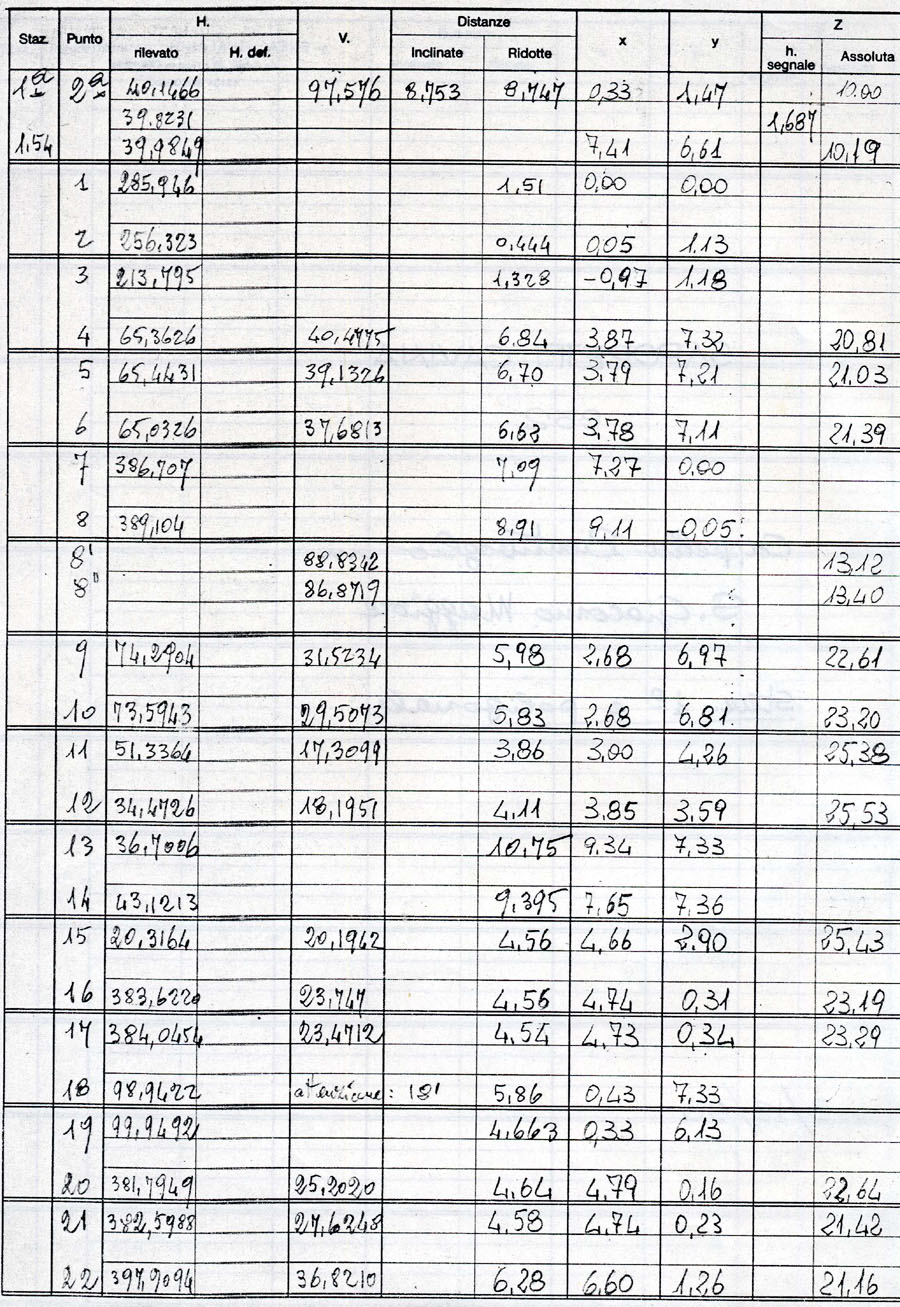 Staz. Punto H. V. Distanze x y Z
rilevato H. def. Inclinate Ridotte h. segnale Assoluta
1ª 2ª 40,1466 97,576 8,753 8,747 0,33 1,47 10.00
39.8231 1,687
1,54 39,9849 7,41 6,61 10,19
1 285,946 1,51 0,00 0,00
2 256,323 0,444 0,05 1.13
3 213,795 1,328 -0,97 1,18
4 65,3626 40,4775 6.84 3,87 7,32 20,81
5 65,4431 39,1326 6,70 3,79 7,21 21,03
6 65,0326 37,6813 6,63 3,78 7,11 21,39
7 386,707 7,09 7,27 0,00
8 389,104 8,91 9,11 -0,05
8' 88,8342 13,12
8" 86,8719 13,40
9 74,2904 31,5234 5,98 2,68 6,97 22,61
10 73,5943 29,5073 5,83 2,68 6,81 23,20
11 51,3364 17,3099 3,86 3,00 4,26 25,38
12 34,4726 18,1951 4,11 3,85 3,59 25,53
13 36,7006 10,75 9.34 7,33
14 43,1213 9,395 7,65 7,36
15 20,3164 20,1942 4,56 4,66 2.90 25,43
16 383,6220 23,747 4,56 4,74 0,31 23,19
17 384,0454 23,4712 4,54 4,73 0,34 23,29
18 98,9422 attenzione: 18' 5,86 0,43 7,33
19 99,9492 4,663 0,33 6,13
20 381,7949 25,2020 4,64 4,79 0,16 22,64
21 382,5988 27,6248 4,58 4,74 0,23 21,42
22 397,9094 36,8210 6,28 6,60 1,26 21,16